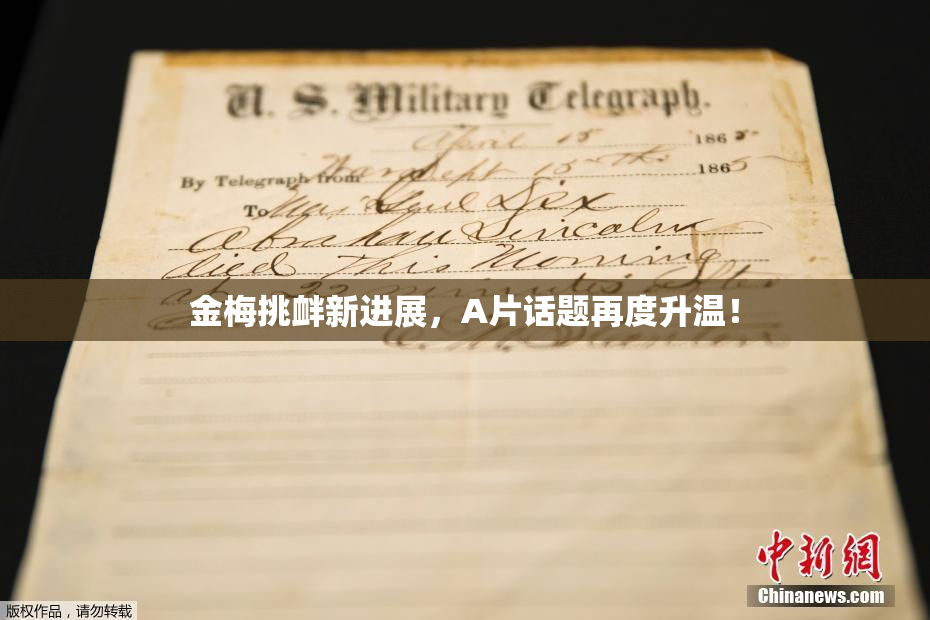 U. S. Military Telegraph.
April 15 1865
By Telegraph from War Dept 15th 1865
To Maj Genl Dix
Abraham Lincoln
died This Morning
at 22 minutes after
金梅挑衅新进展，A片话题再度升温！
E. M. Stanton
中新网
Chinanews.com
版权作品，请勿转载